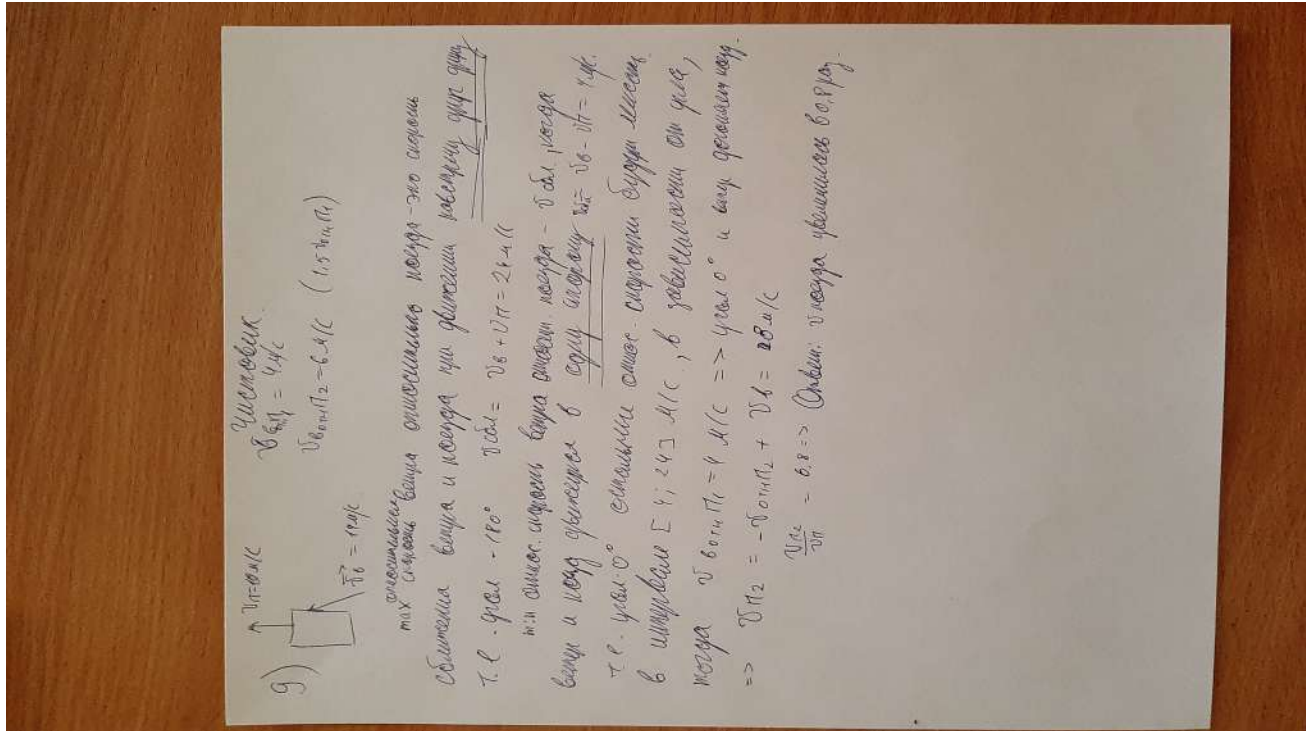 Чистовик
9)
vп=10 м/с
vв = 14 м/с
vв отн п1 = 4 м/с
vв отн п2 = 6 м/с (1,5 vв отн п1)
max относительная скорость ветра относительно поезда - это скорость
сближения ветра и поезда при движении навстречу друг другу
т.е. угол - 180° vсбл = vв + vп = 24 м/с
min относ. скорость ветра относит. поезда - vсбл, когда
ветер и поезд движутся в одну сторону = vв - vп = 4 м/с.
т.е. угол 0° остальные относ. скорости будут
в интервале [4; 24] м/с, в зависимости от угла,
тогда vв отн п1 = 4 м/с => угол 0° и ветер догоняет поезд.
=> vп2 = -vотн п2 + vв = 8 м/с
vп2/vп = 0,8 => Ответ: v поезда увеличилась в 0,8 раз.